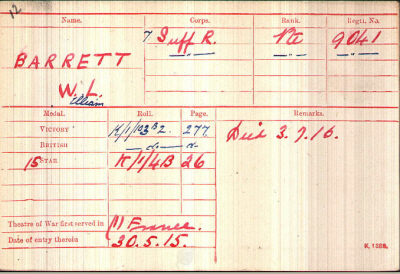 12
Name. Corps. Rank. Regtl. No.
BARRETT 7 Suff R. Pte 9041
W. L.
illiam
Medal. Roll. Page. Remarks.
VICTORY K/1/103B2. 277 Died 3.7.16.
BRITISH —do— do
15 STAR K/1/4B 26
Theatre of War first served in (1) France.
Date of entry therein 30.5.15.
K. 1380.